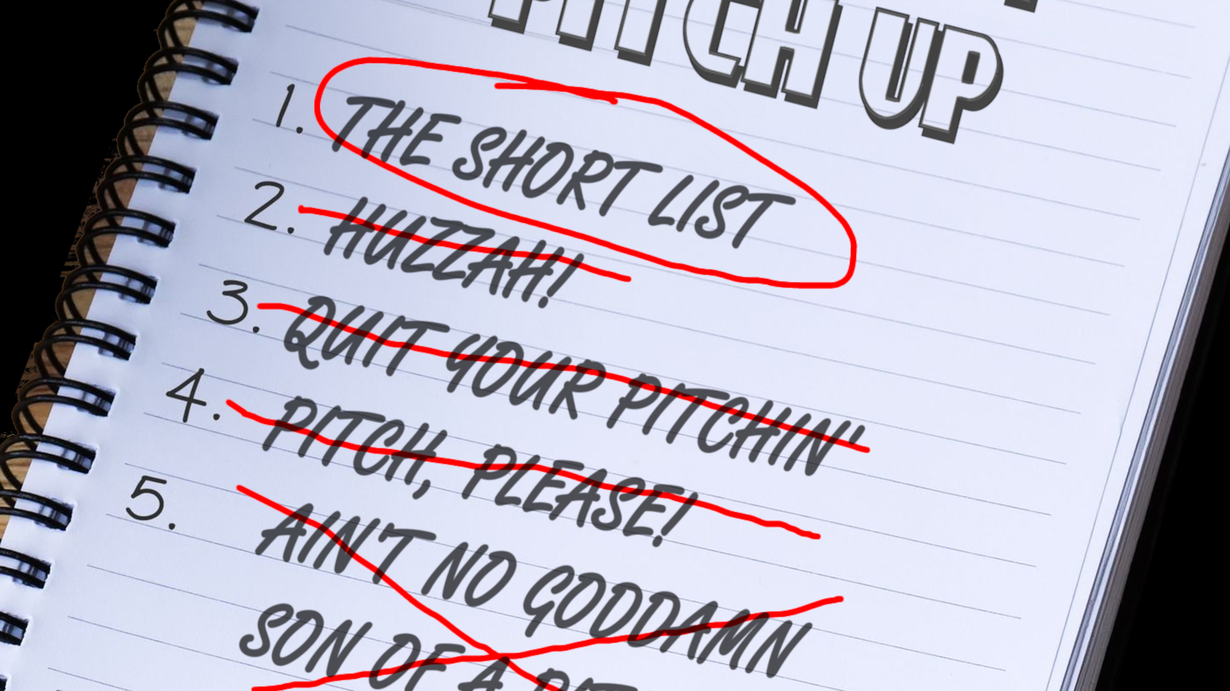 PITCH UP
1. THE SHORT LIST
2. HUZZAH!
3. QUIT YOUR PITCHIN'
4. PITCH, PLEASE!
5. AIN'T NO GODDAMN
SON OF A